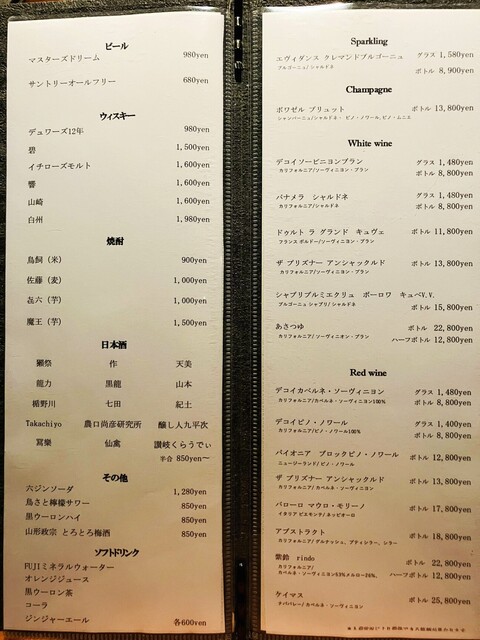 ビール
マスターズドリーム 980yen
サントリーオールフリー 680yen
ウィスキー
デュワーズ12年 980yen
碧 1,500yen
イチローズモルト 1,600yen
響 1,600yen
山崎 1,600yen
白州 1,980yen
焼酎
鳥飼（米） 900yen
佐藤（麦） 1,000yen
㐂六（芋） 1,000yen
魔王（芋） 1,500yen
日本酒
獺祭 作 天美
龍力 黒龍 山本
楯野川 七田 紀土
Takachiyo 農口尚彦研究所 醸し人九平次
冩樂 仙禽 讃岐くらうでぃ
半合 850yen～
その他
六ジンソーダ 1,280yen
鳥さと檸檬サワー 850yen
黒ウーロンハイ 850yen
山形政宗 とろとろ梅酒 850yen
ソフトドリンク
FUJIミネラルウォーター
オレンジジュース
黒ウーロン茶
コーラ
ジンジャーエール 各600yen
Sparkling
エヴィダンス クレマンドブルゴーニュ グラス 1,580yen
ブルゴーニュ/シャルドネ ボトル 8,900yen
Champagne
ボワゼル ブリュット ボトル 13,800yen
シャンパーニュ/シャルドネ・ピノ・ノワール,ピノ・ムニエ
White wine
デコイソービニヨンブラン グラス 1,480yen
カリフォルニア/ソーヴィニヨン・ブラン ボトル 8,800yen
パナメラ シャルドネ グラス 1,480yen
カリフォルニア/シャルドネ ボトル 8,800yen
ドゥルト ラ グランド キュヴェ ボトル 11,800yen
フランス ボルドー/ソーヴィニヨン・ブラン
ザ プリズナー アンシャックルド ボトル 13,800yen
カリフォルニア/ソーヴィニヨン・ブラン
シャブリプルミエクリュ ボーロワ キュベV.V.
ブルゴーニュ シャブリ/シャルドネ ボトル 15,800yen
あさつゆ ボトル 22,800yen
カリフォルニア/ソーヴィニオン・ブラン ハーフボトル 12,800yen
Red wine
デコイカベルネ・ソーヴィニヨン グラス 1,480yen
カリフォルニア/カベルネ・ソーヴィニヨン100% ボトル 8,800yen
デコイピノ・ノワール グラス 1,400yen
カリフォルニア/ピノ・ノワール100% ボトル 8,800yen
パイオニア ブロックピノ・ノワール ボトル 12,800yen
ニュージーランド/ピノ・ノワール
ザ プリズナー アンシャックルド ボトル 13,800yen
カリフォルニア/カベルネ・ソーヴィニヨン
バローロ マウロ・モリーノ ボトル 17,800yen
イタリア ピエモンテ/ネッビオーロ
アブストラクト ボトル 18,800yen
カリフォルニア/ グルナッシュ、プティシラー、シラー
紫鈴 rindo ボトル 22,800yen
カリフォルニア/
カベルネ・ソーヴィニヨン53%メルロー26%、 ハーフボトル 12,800yen
ケイマス ボトル 25,800yen
ナパバレー/カベルネ・ソーヴィニヨン